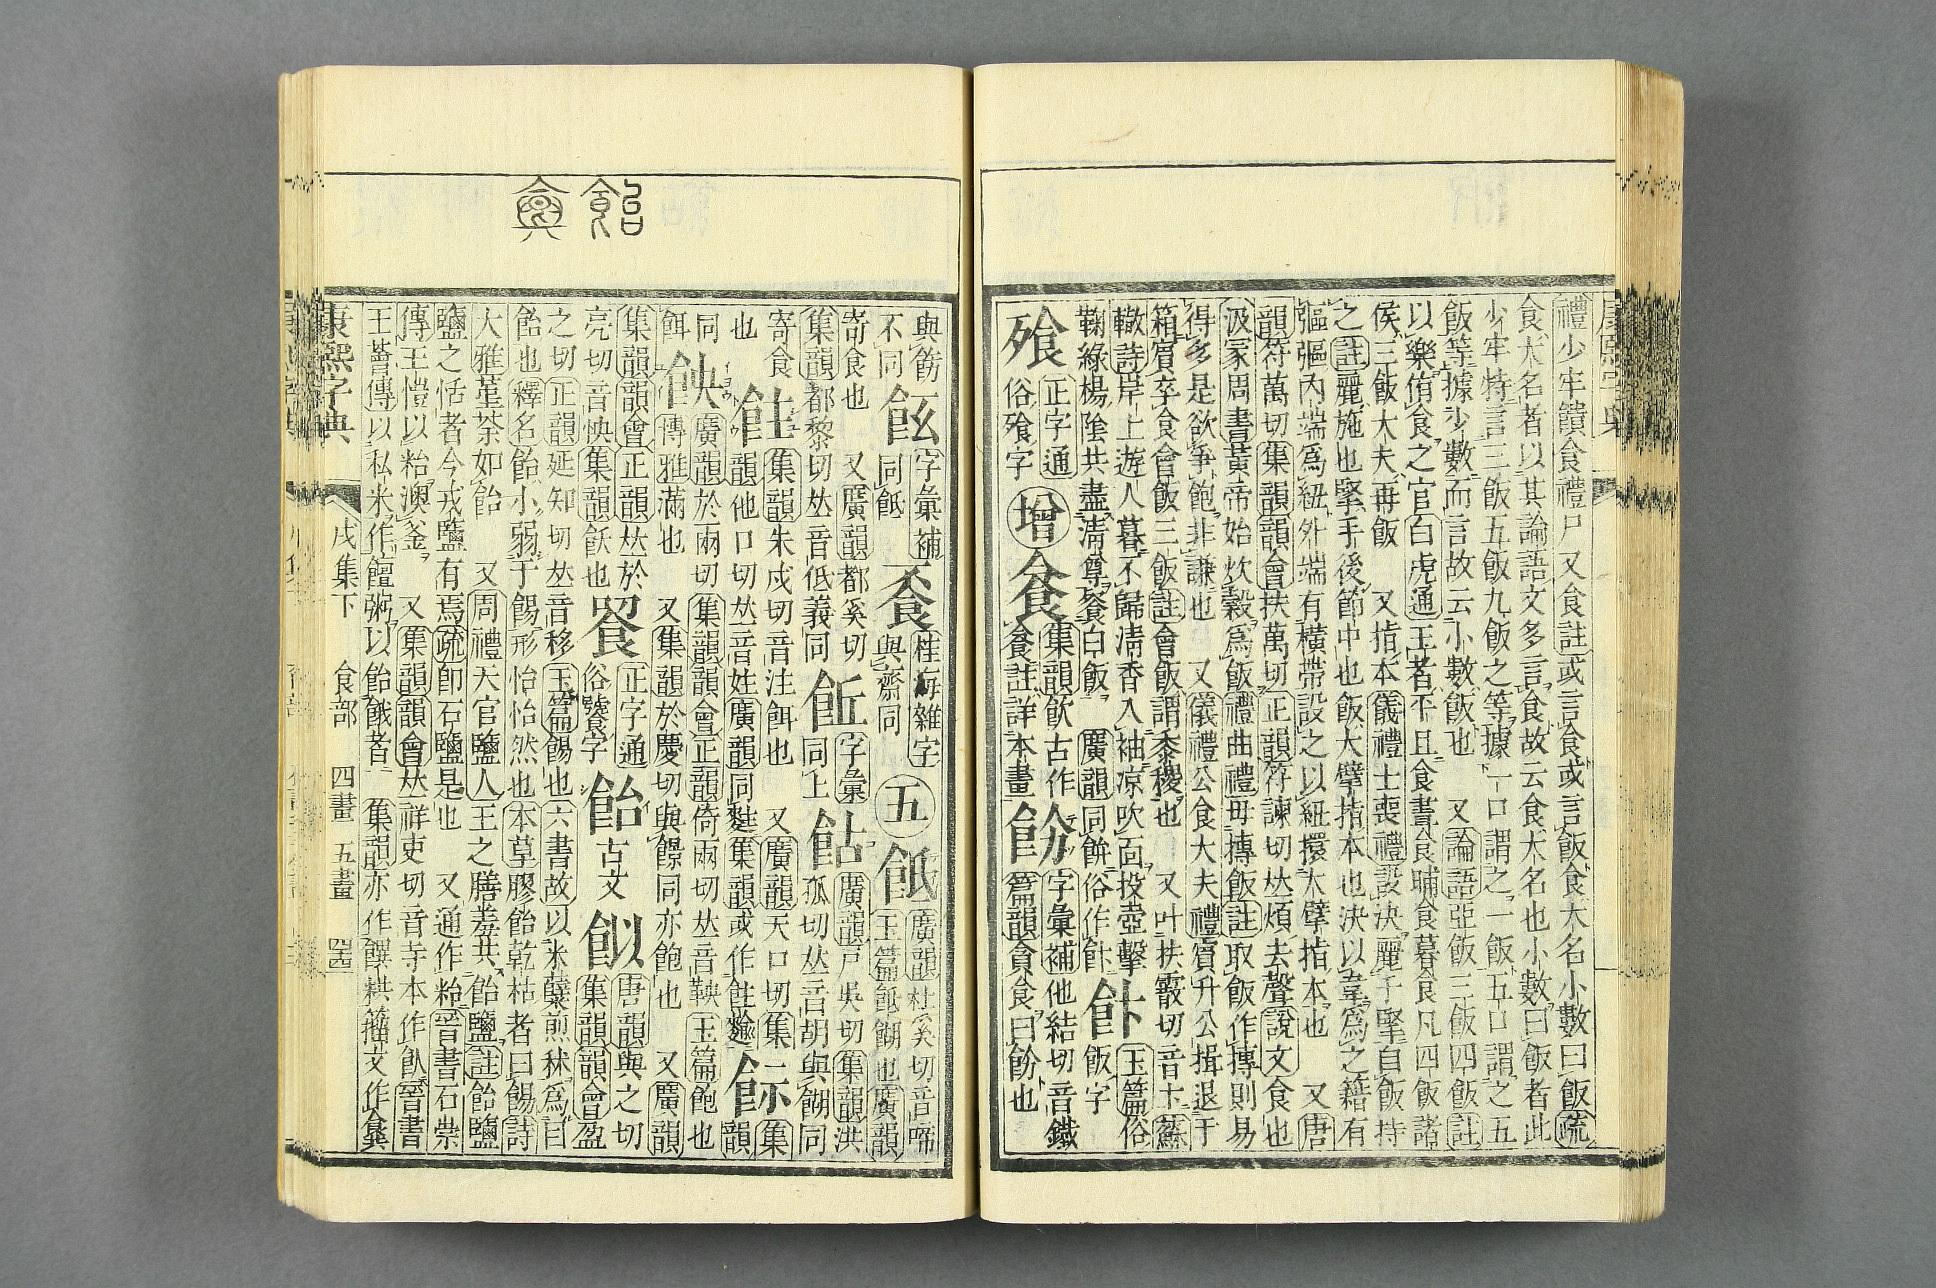 禮少牢饋食禮尸又食註或言食或言飯食大名小數曰飯疏
食大名者以其論語文多言食故云食大名也小數曰飯者此
少牢特言三飯五飯九飯之等據一口謂之一飯五口謂之五
飯等據少數而言故云小數飯也 又論語亞飯三飯四飯註
以樂侑食之官白虎通王者平旦食晝食晡食暮食凡四飯諸
侯三飯大夫再飯 又指本儀禮士喪禮設決麗于掔自飯持
之註麗施也掔手後節中也飯大擘指本也決以韋爲之籍有
彄彄內端爲紐外端有橫帶設之以紐擐大擘指本也 又唐
韻符萬切集韻韻會扶萬切正韻符諫切𠀤煩去聲說文食也
汲冢周書黃帝始炊穀爲飯禮曲禮毋摶飯註取飯作摶則易
得多是欲爭飽非謙也 又儀禮公食大夫禮賓升公揖退于
箱賓卒食會飯三飯註會飯謂黍稷也 又叶扶霰切音卞蘇
轍詩岸上遊人暮不歸淸香入袖凉吹面投壺擊
鞠綠楊陰共盡淸尊餐白飯 廣韻同餠俗作飰 飰 玉篇俗飯字
飱 正字通俗飧字 增 食 集韻飮古作食註詳本畫 飻 字彙補他結切音鐵篇韻貪食曰飻也
與飭不同 䭅 字彙補同䬫 𩚬 桂海雜字與齋同 五 䬫 廣韻杜奚切音啼玉篇䬫餬也廣韻
寄食也 又廣韻都奚切
集韻都黎切𠀤音低義同 䬣 字彙同上 䬤 廣韻戸吳切集韻洪孤切𠀤音胡與餬同
寄食也 飳 集韻朱戍切音注餌也 又廣韻天口切集
韻他口切𠀤音姓廣韻同䴺集韻或作飳䴺 䬢 集韻
同餌 䬬 廣韻於兩切集韻韻會正韻倚兩切𠀤音鞅玉篇飽也
博雅滿也 又集韻於慶切與𩜌同亦飽也 又廣韻
集韻韻會正韻𠀤於亮切音怏集韻飫也 䬸 正字通俗饕字 飴 古文 𩛿 唐韻與之切集韻韻會盈
之切正韻延知切𠀤音移玉篇餳也六書故以米櫱煎秫爲之
飴也釋名飴小弱于餳形怡怡然也本草膠飴乾枯者曰餳詩
大雅堇荼如飴 又周禮天官鹽人王之膳羞共飴鹽註飴鹽
鹽之恬者今戎鹽有焉疏卽石鹽是也 又通作粭晉書石崇
傳王愷以粭澳釜 又集韻韻會𠀤祥吏切音寺本作飤晉書
王薈傳以私米作饘粥以飴餓者 集韻亦作饌𥹋籀文作𩜋
康熙字典 戌集下 食部 四畫 五畫